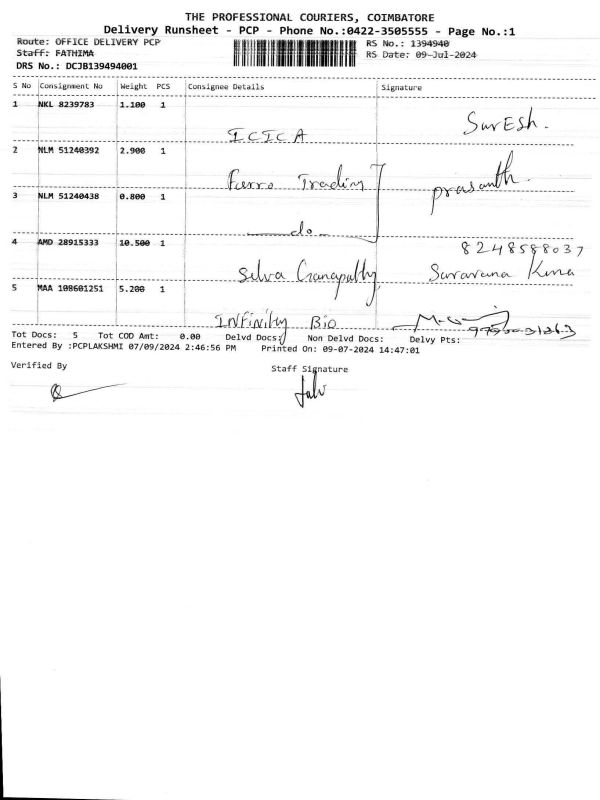 THE PROFESSIONAL COURIERS, COIMBATORE
Delivery Runsheet - PCP - Phone No.:0422-3505555 - Page No.:1
Route: OFFICE DELIVERY PCP
RS No.: 1394940
Staff: FATHIMA
RS Date: 09-Jul-2024
DRS No.: DCJB139494001
S No Consignment No Weight PCS Consignee Details Signature
1 NKL 8239783 1.100 1
SurESh.
ICICA
2 NLM 51240392 2.900 1
Farro Trading prasanth.
3 NLM 51240438 0.800 1
do
4 AMD 28915333 10.500 1
8248588037
Selva Ganapathy Saravana Kuma
5 MAA 108601251 5.200 1
INFinity Bio
Tot Docs: 5 Tot COD Amt: 0.00 Delvd Docs: Non Delvd Docs: Delvy Pts:
Entered By :PCPLAKSHMI 07/09/2024 2:46:56 PM Printed On: 09-07-2024 14:47:01
Verified By
Staff Signature